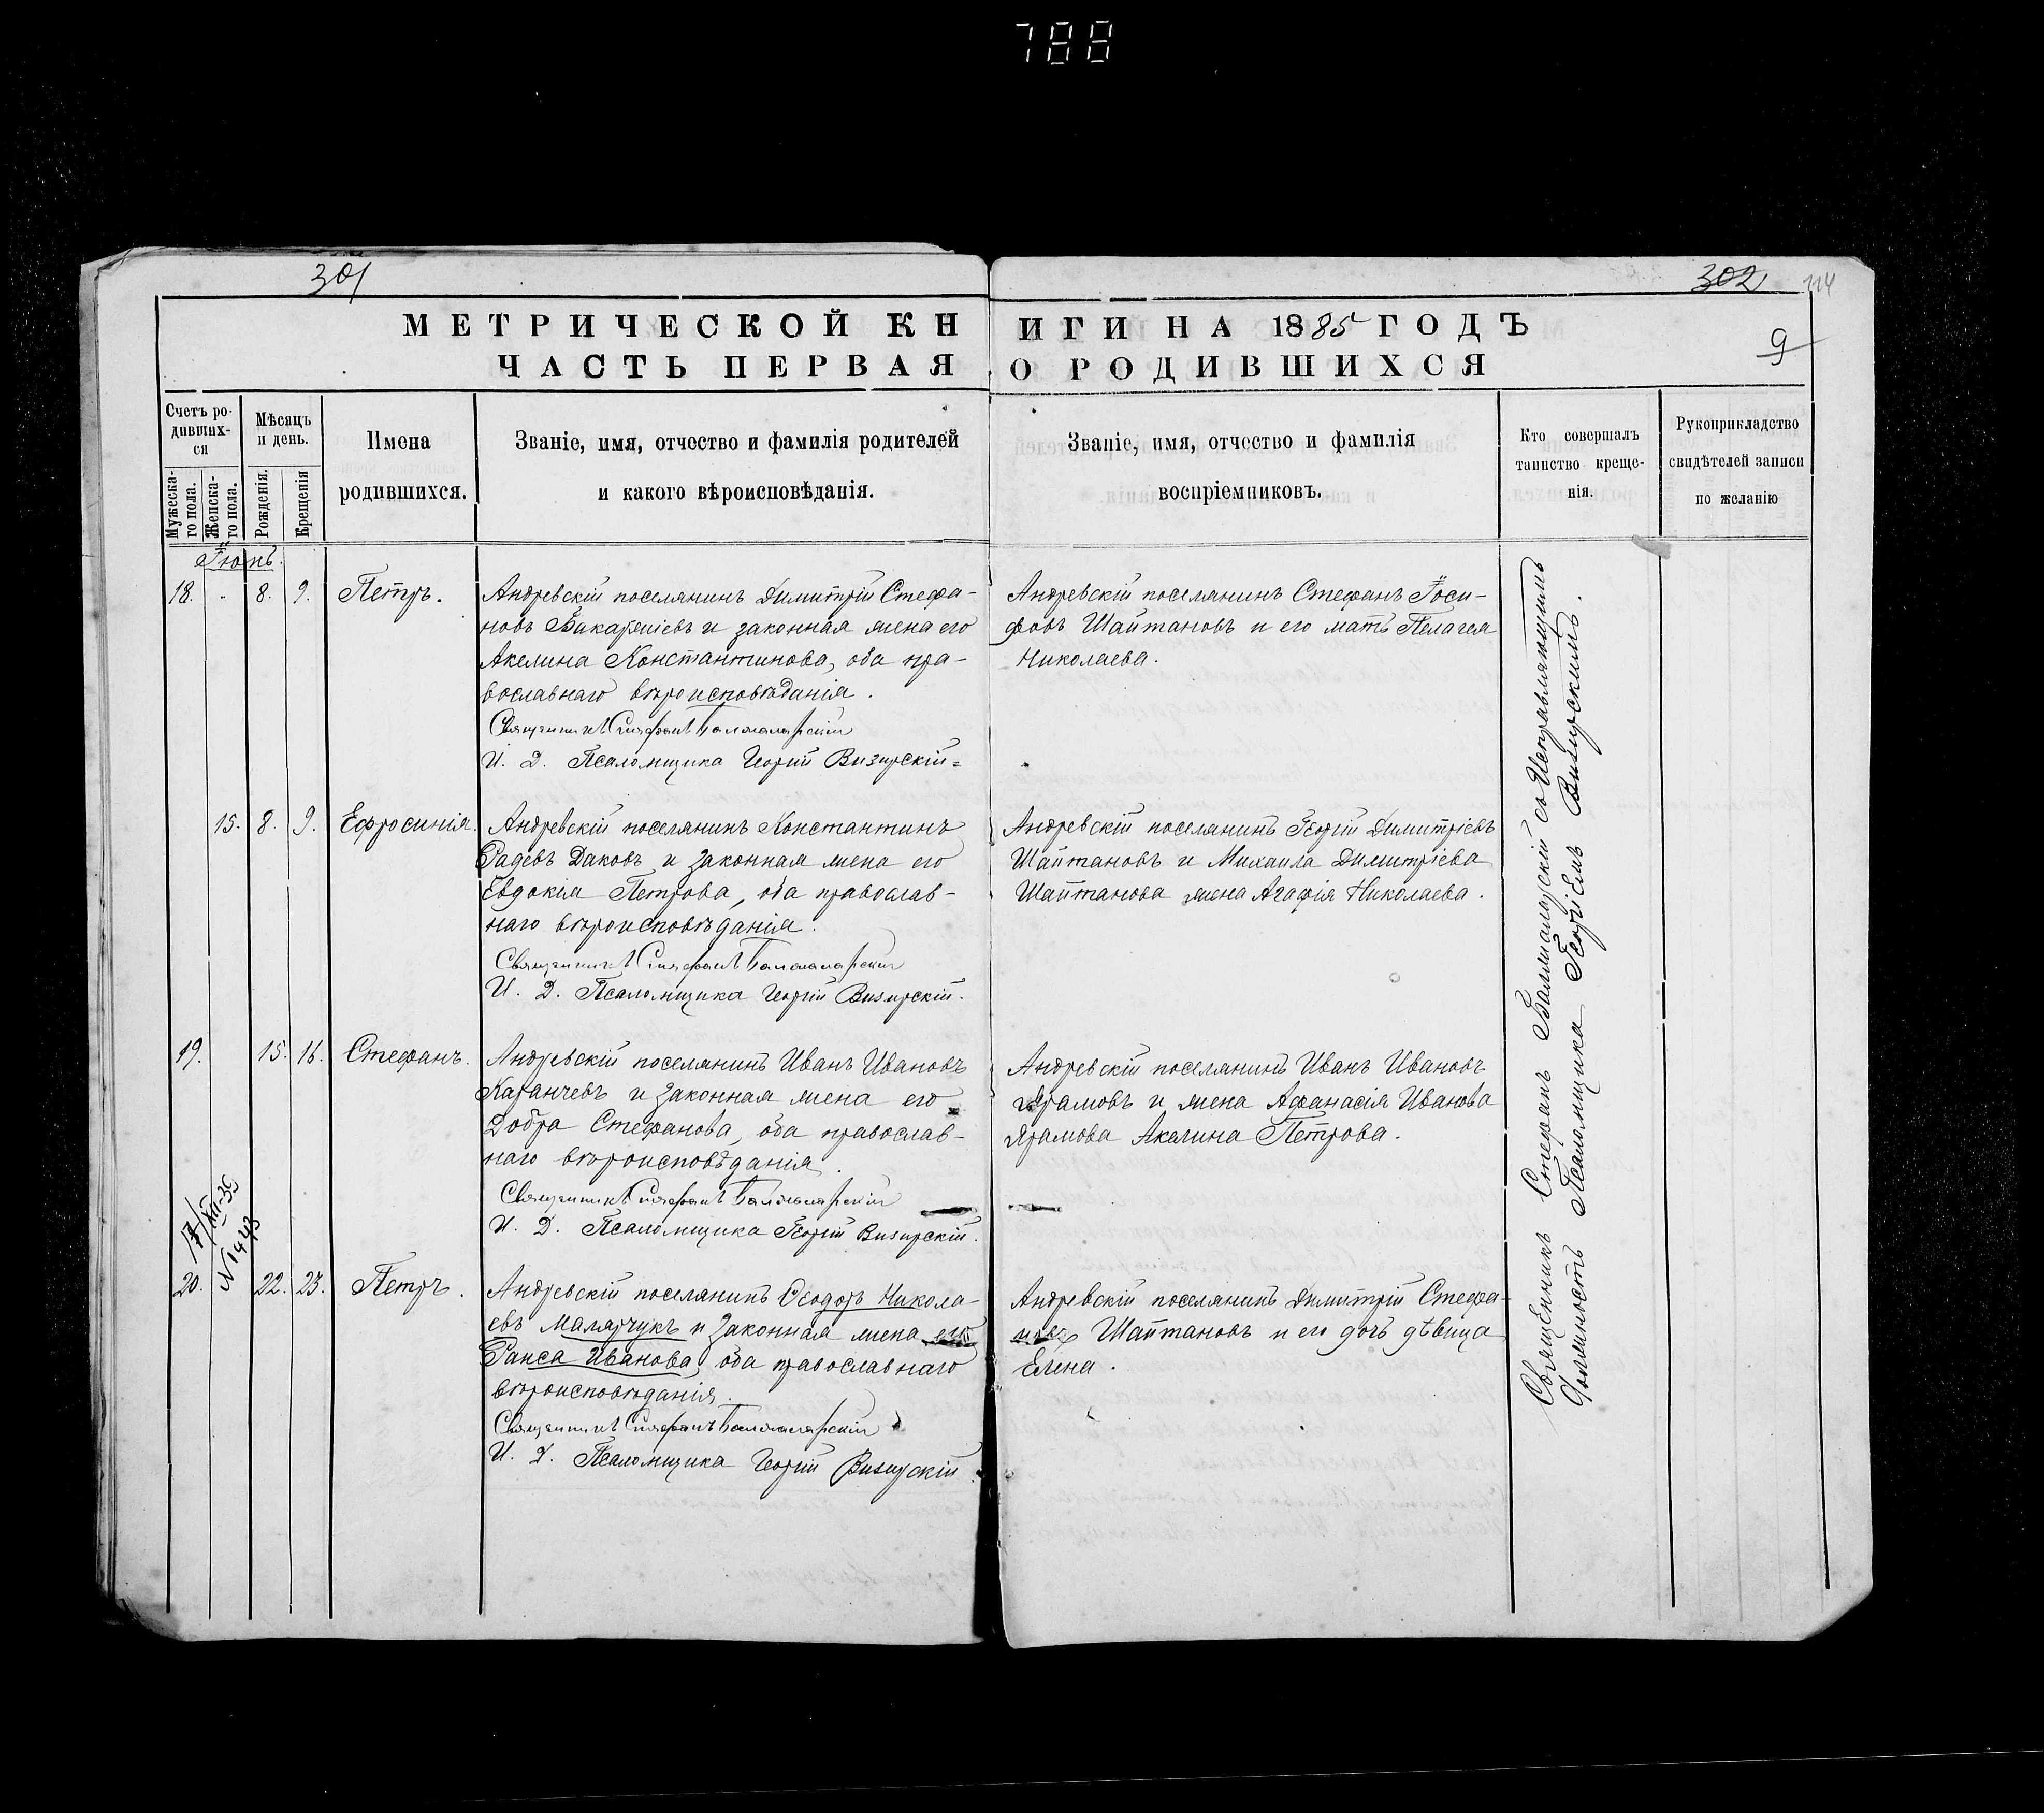 788
301
302
114
МЕТРИЧЕСКОЙ КНИГИ НА 1885 ГОДЪ
9
ЧАСТЬ ПЕРВАЯ О РОДИВШИХСЯ
Счетъ ро-
дивших-
ся
Мужеска-
го пола.
Женска-
го пола.
Мѣсяцъ
и день.
Рожденія.
Крещенія
Имена
родившихся.
Званіе, имя, отчество и фамилія родителей
и какого вѣроисповѣданія.
Званіе, имя, отчество и фамилія
воспріемниковъ.
Кто совершалъ
таинство креще-
нія.
Рукоприкладство
свидѣтелей записи
по желанію
Іюнь.
18. - 8. 9. Петръ.
Андревскій поселянинъ Димитрій Стефа-
новъ Бакаржіевъ и законная жена его
Акелина Константинова, оба пра-
вославнаго вѣроисповѣданія.
Священникъ Стефанъ Балжаларскій
И. Д. Псаломщика Георгій Визирскій
Андревскій поселянинъ Стефанъ Іоси-
фовъ Шайтановъ и его мать Пелагея
Николаева.
15. 8. 9. Ефросинія.
Андревскій поселянинъ Константинъ
Радевъ Даковъ и законная жена его
Евдокія Петрова, оба православ-
наго вѣроисповѣданія.
Священникъ Стефанъ Балжаларскій
И. Д. Псаломщика Георгій Визирскій.
Андревскій поселянинъ Георгій Димитріевъ
Шайтановъ и Михаила Димитріева
Шайтанова жена Агафія Николаева.
19. 15. 16. Стефанъ.
Андревскій поселянинъ Иванъ Ивановъ
Каранчевъ и законная жена его
Добра Стефанова, оба православ-
наго вѣроисповѣданія.
Священникъ Стефанъ Балжаларскій
И. Д. Псаломщика Георгій Визирскій.
Андревскій поселянинъ Иванъ Ивановъ
Ярамовъ и жена Афанасія Иванова
Ярамова Акелина Петрова.
20. 22. 23. Петръ.
Андревскій поселянинъ Ѳеодоръ Никола-
евъ Малярчукъ и законная жена его
Раиса Иванова, оба православнаго
вѣроисповѣданія.
Священникъ Стефанъ Балжаларскій
И. Д. Псаломщика Георгій Визирскій
Андревскій поселянинъ Димитрій Стефа-
новъ Шайтановъ и его дочь дѣвица
Елена.
Священникъ Стефанъ Балжаларскій со Исправляющимъ
должность Псаломщика Георгіемъ Визирскимъ.